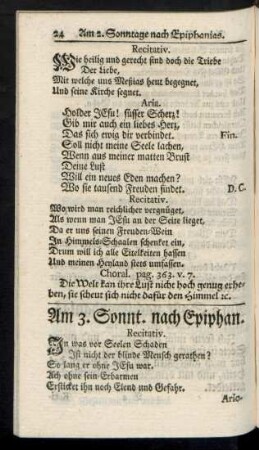 24 Am 2. Sonntage nach Epiphanias.
Recitativ.
Wie heilig und gerecht sind doch die Triebe
Der Liebe,
Mit welche uns Meßias heut begegnet,
Und seine Kirche segnet.
Aria.
Holder JEsu! süsser Schertz!
Gib mir auch ein liebes Hertz,
Das sich ewig dir verbindet. Fin.
Soll nicht meine Seele lachen,
Wenn aus meiner matten Brust
Deine Lust
Will ein neues Eden machen?
Wo sie tausend Freuden findet. D. C.
Recitativ.
Wo wird man reichlicher vergnüget,
Als wenn man JEsu an der Seite lieget.
Da er uns seinen Freuden-Wein
In Himmels-Schaalen schenket ein,
Drum will ich alle Eitelkeiten hassen
Und meinen Heyland stets umfassen.
Choral. pag. 363. v. 7.
Die Welt kan ihre Lust nicht hoch genug erhe-
ben, sie scheut sich nicht dafür den Himmel ꝛc.
Am 3. Sonnt. nach Epiphan.
Recitativ.
In was vor Seelen Schaden
Ist nicht der blinde Mensch gerathen?
So lang er ohne JEsu war.
Ach ohne sein Erbarmen
Ersticket ihn noch Elend und Gefahr.
Ario-